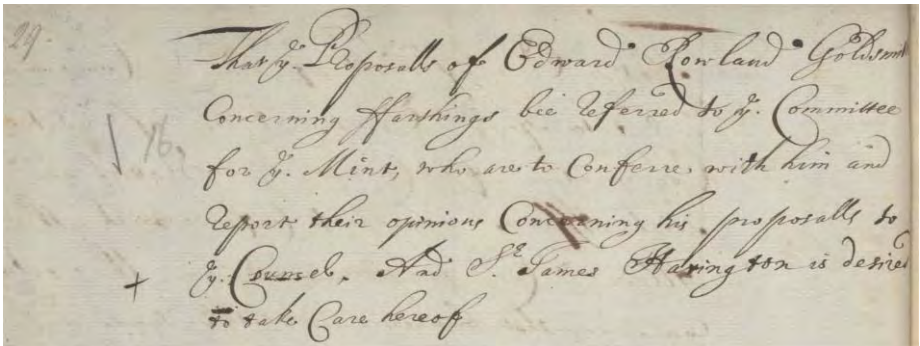 29.
That ye. Proposalls of Edward Rowland Goldsm
Concerning ffarthings bee Referred to ye. Committee
16.
for ye. Mint, who are to Conferre with him and
Report their opinions Concerning his proposalls to
ye. Counsel. And Sr. James Harington is desired
+
to take Care hereof